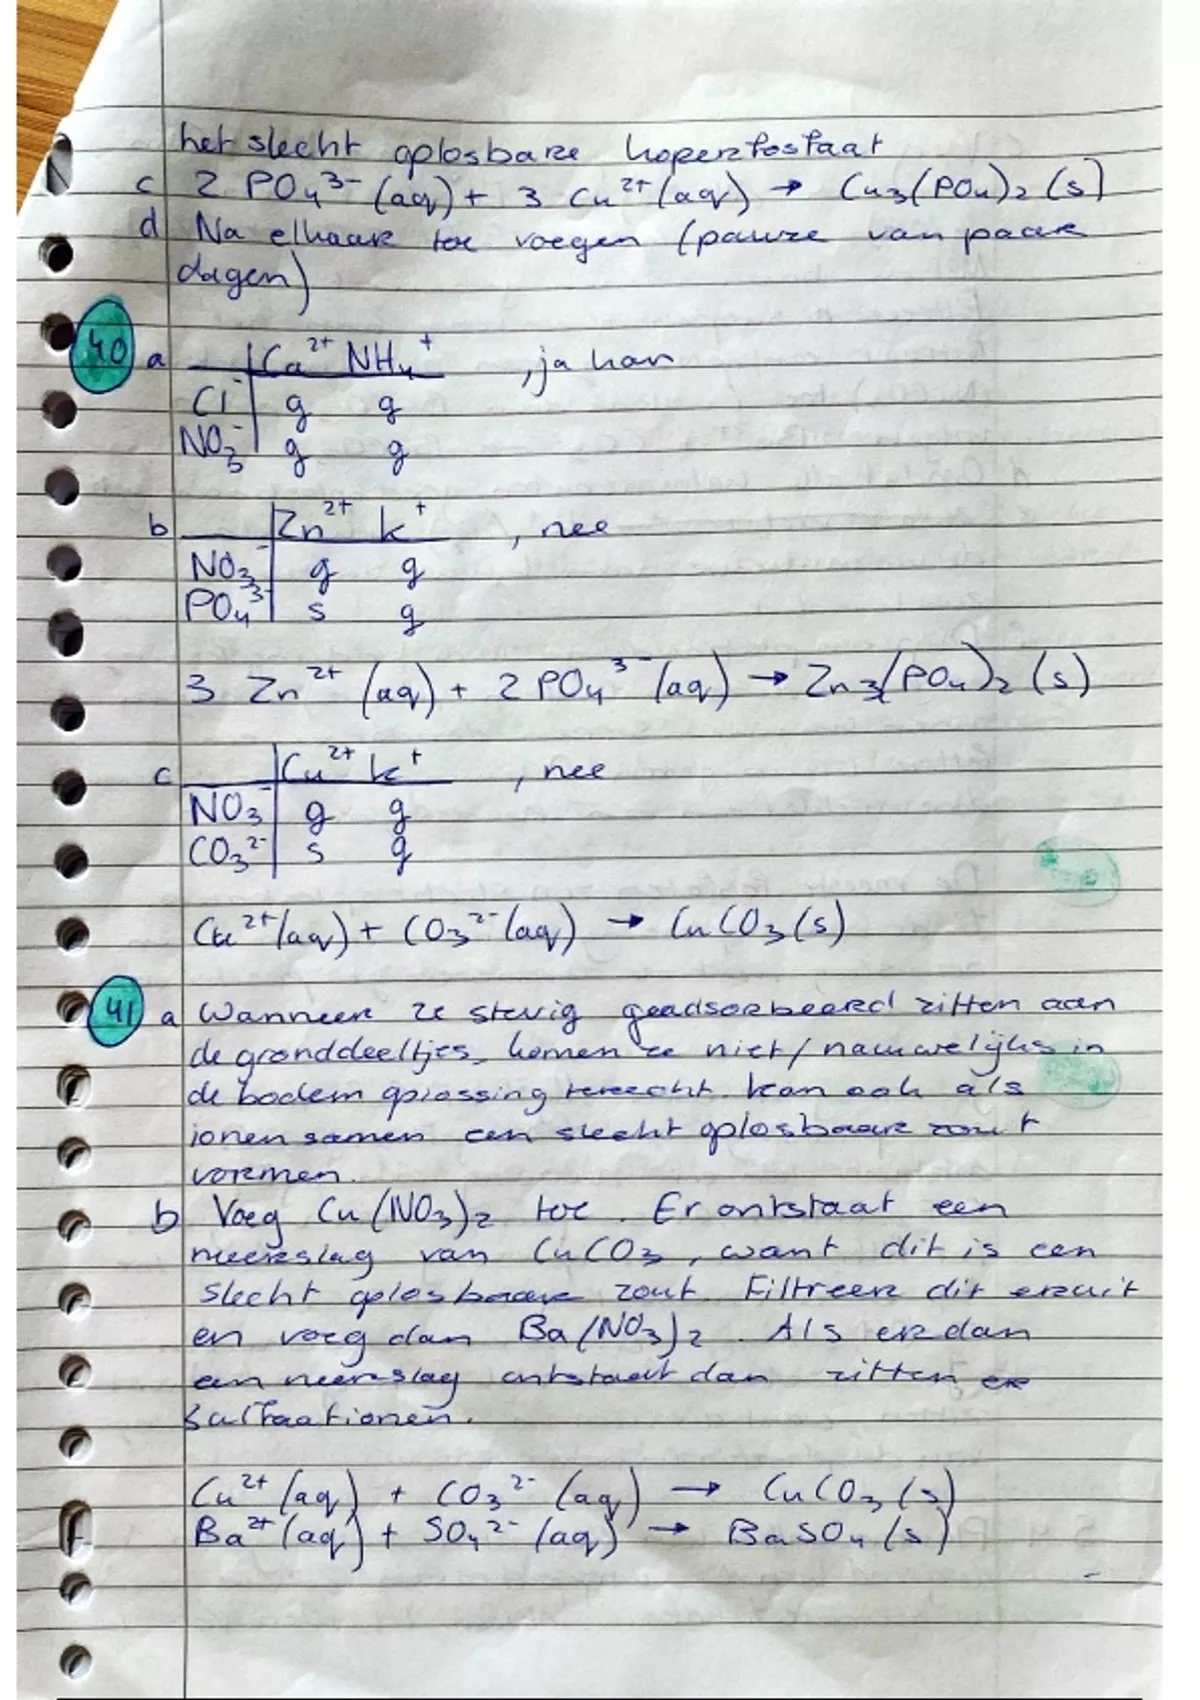 het slecht oplosbare koperfosfaat
c 2 PO₄³⁻ (aq) + 3 Cu²⁺ (aq) → Cu₃(PO₄)₂ (s)
d Na elkaar toe voegen (pauze van paar
dagen)
40 a Ca²⁺ NH₄⁺ , ja kan
Cl⁻ g g
NO₃⁻ g g
b Zn²⁺ K⁺ , nee
NO₃⁻ g g
PO₄³⁻ s g
3 Zn²⁺ (aq) + 2 PO₄³⁻ (aq) → Zn₃(PO₄)₂ (s)
c Cu²⁺ K⁺ , nee
NO₃⁻ g g
CO₃²⁻ s g
Cu²⁺ (aq) + CO₃²⁻ (aq) → CuCO₃ (s)
41 a Wanneer ze stevig geadsorbeerd zitten aan
de gronddeeltjes, komen ze niet / nauwelijks in
de bodem oplossing terecht. kan ook als
ionen samen een slecht oplosbaar zout
vormen.
b Voeg Cu(NO₃)₂ toe. Er ontstaat een
neerslag van CuCO₃, want dit is een
slecht oplosbaar zout. Filtreer dit eruit
en voeg dan Ba(NO₃)₂. Als er dan
een neerslag ontstaat dan zitten er
sulfaationen.
Cu²⁺ (aq) + CO₃²⁻ (aq) → CuCO₃ (s)
Ba²⁺ (aq) + SO₄²⁻ (aq) → BaSO₄ (s)